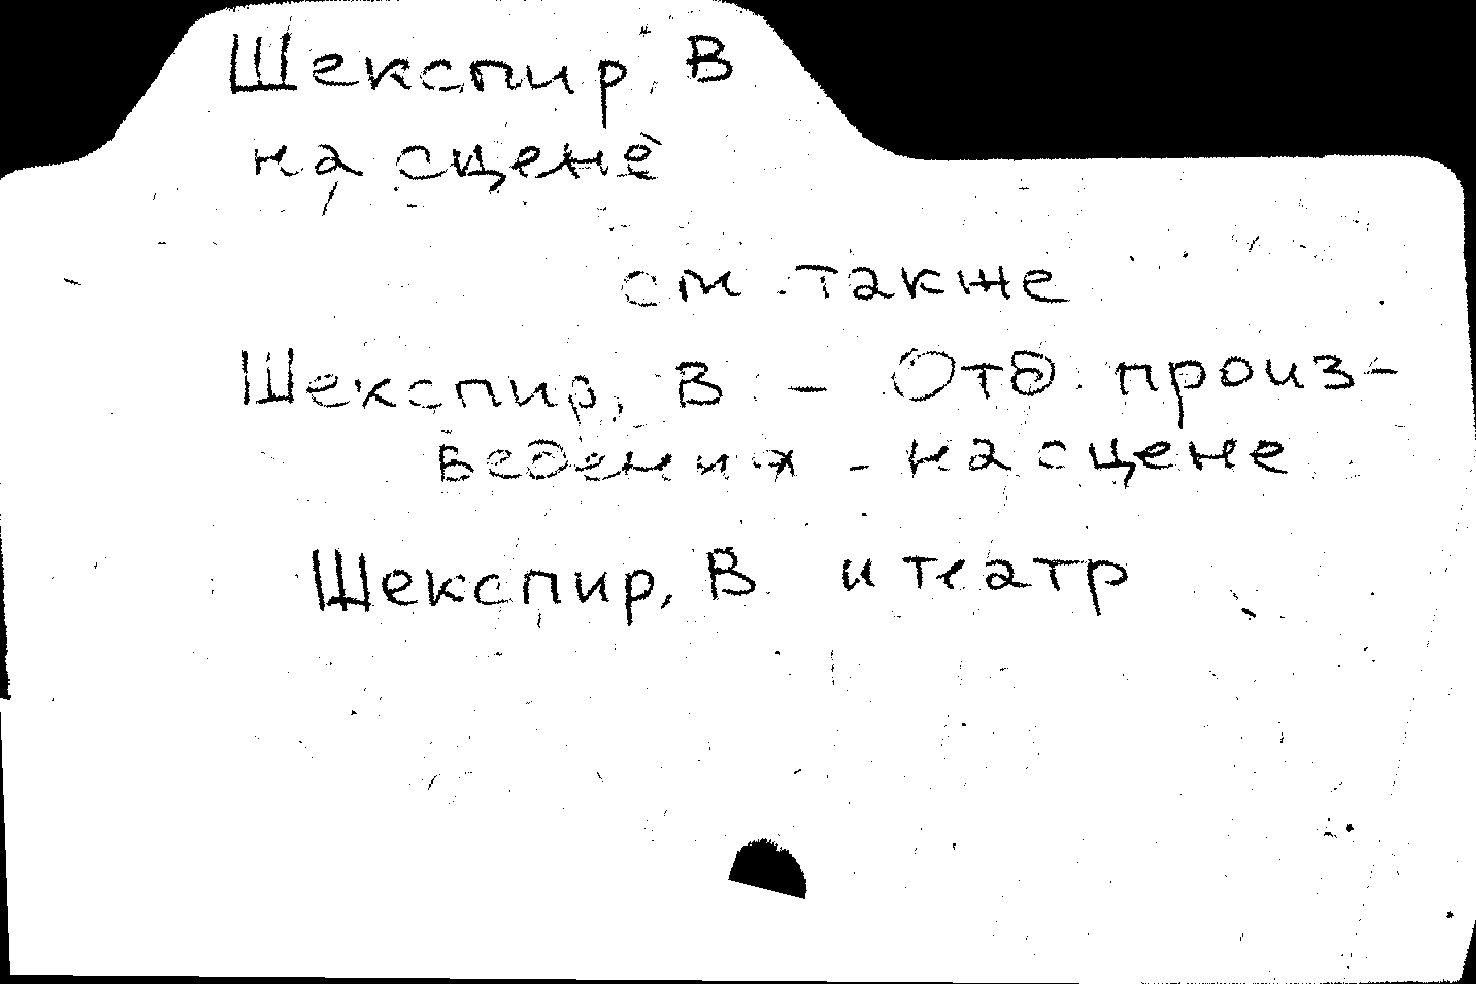 Шекспир, В
на сцене
см. также
Шекспир, В – Отд. произ-
ведения – на сцене
Шекспир, В и театр